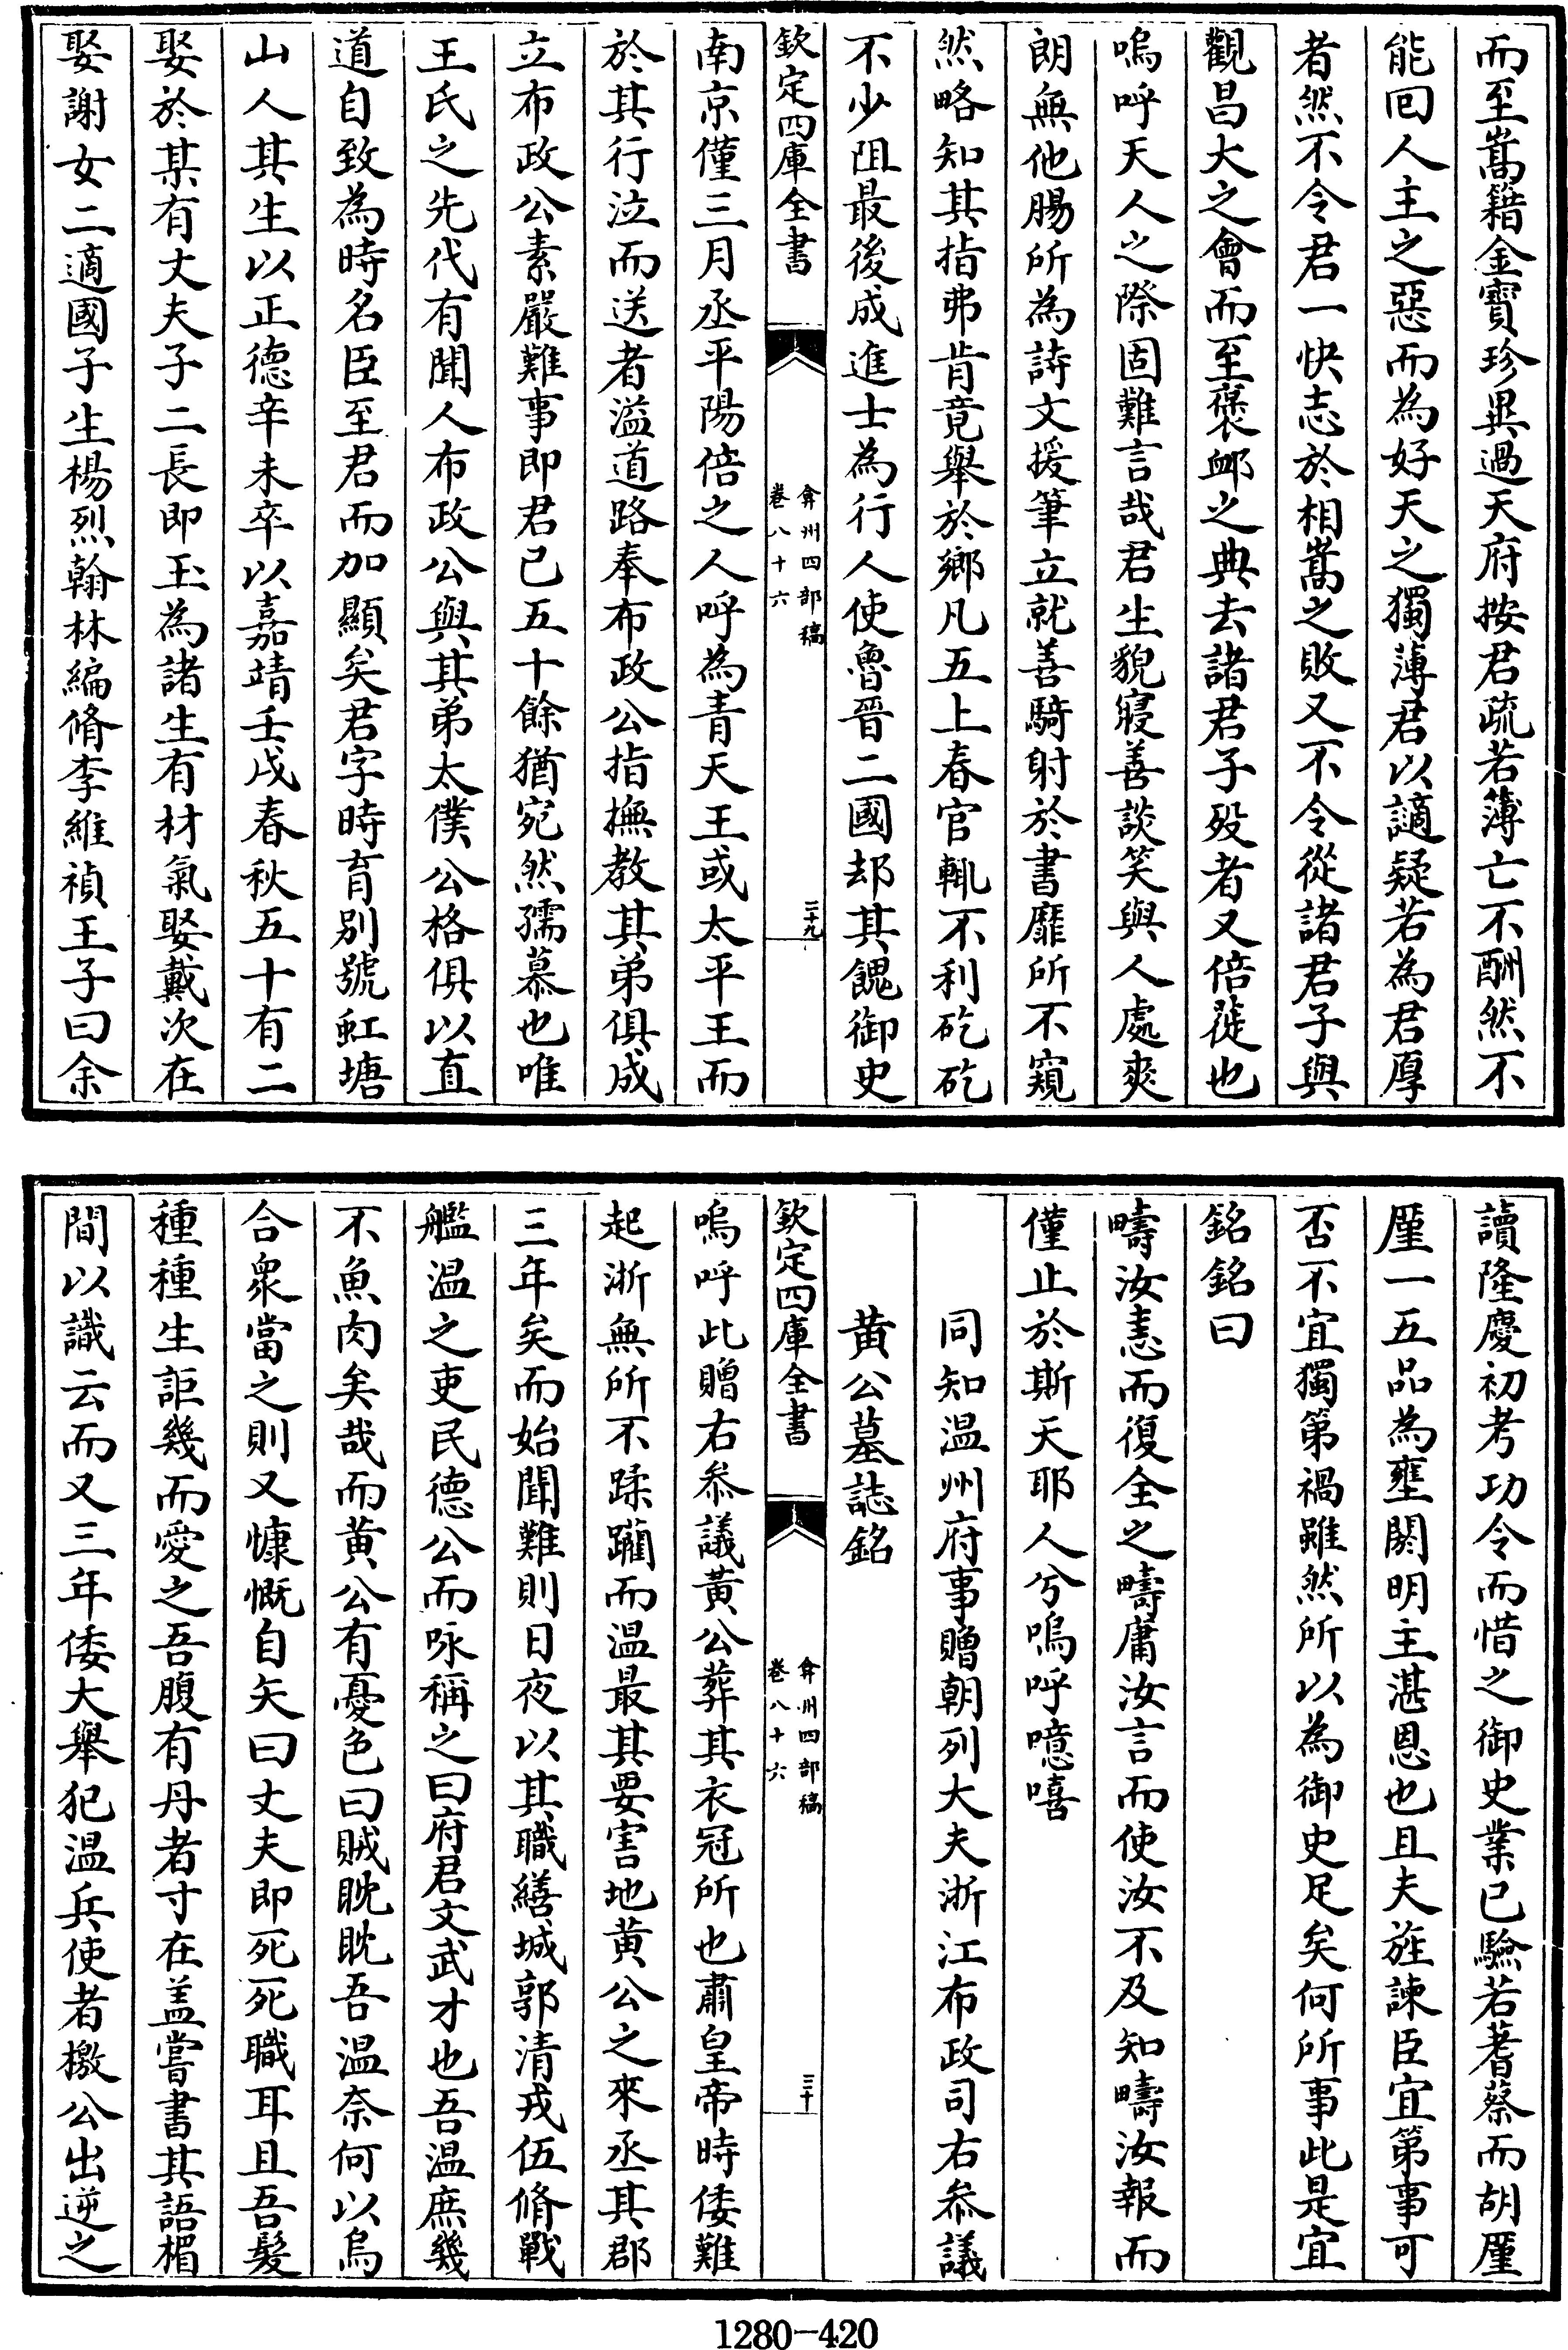 而至嵩籍金寶珍異過天府按君疏若薄亡不酬然不
能回人主之惡而為好天之獨薄君以謫疑若為君厚
者然不令君一快志於相嵩之敗又不令從諸君子與
觀昌大之會而至褒衈之典去諸君子歿者又倍蓰也
嗚呼天人之際固難言哉君生貌寢善談笑與人處爽
朗無他腸所為詩文援筆立就善騎射於書靡所不窺
然略知其指弗肯竟舉於鄉凡五上春官輒不利矻矻
不少阻最後成進士為行人使魯晉二國却其餽御史
欽定四庫全書
弇州四部稿
卷八十六
二十九
南京僅三月丞平陽倍之人呼為青天王或太平王而
於其行泣而送者溢道路奉布政公指撫教其弟俱成
立布政公素嚴難事即君已五十餘猶宛然孺慕也唯
王氏之先代有聞人布政公與其弟太僕公格俱以直
道自致為時名臣至君而加顯矣君字時育別號虹塘
山人其生以正德辛未卒以嘉靖壬戌春秋五十有二
娶於某有丈夫子二長即玉為諸生有材氣娶戴次在
娶謝女二適國子生楊烈翰林編脩李維禎王子曰余
讀隆慶初考功令而惜之御史業已驗若蓍蔡而胡厪
厪一五品為壅閼明主湛恩也且夫旌諫臣宜第事可
否不宜獨第禍雖然所以為御史足矣何所事此是宜
銘銘曰
疇汝恚而復全之疇庸汝言而使汝不及知疇汝報而
僅止於斯天耶人兮嗚呼噫嘻
同知温州府事贈朝列大夫浙江布政司右叅議
黄公墓誌銘
欽定四庫全書
弇州四部稿
卷八十六
三十
嗚呼此贈右叅議黃公葬其衣冠所也肅皇帝時倭難
起浙無所不蹂躪而温最其要害地黄公之來丞其郡
三年矣而始聞難則日夜以其職繕城郭清戎伍脩戰
艦温之吏民德公而咏稱之曰府君文武才也吾温庶幾
不魚肉矣哉而黄公有憂色曰賊眈眈吾温奈何以烏
合衆當之則又慷慨自矢曰丈夫即死死職耳且吾髮
種種生詎幾而愛之吾腹有丹者寸在盖嘗書其語楣
間以識云而又三年倭大舉犯温兵使者檄公出逆之
1280-420